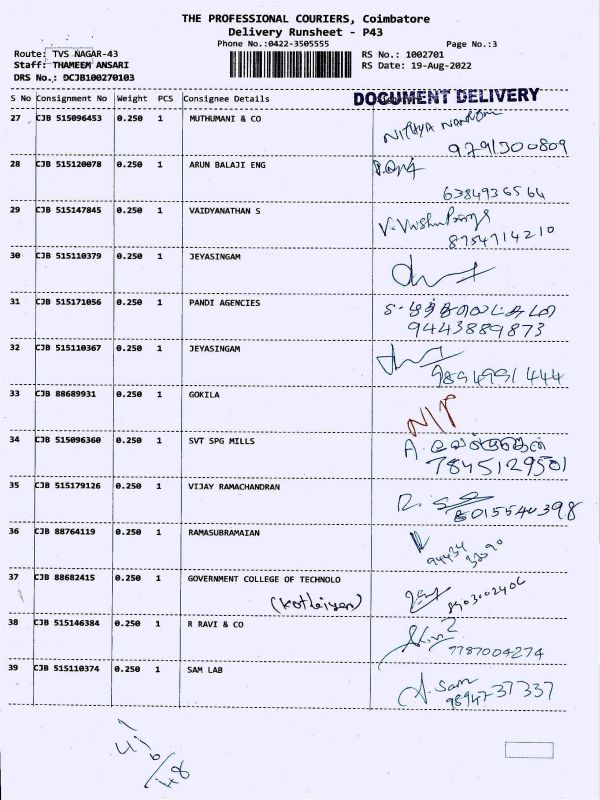 THE PROFESSIONAL COURIERS, Coimbatore
Delivery Runsheet - P43
Phone No.:0422-3505555 Page No.:3
Route: TVS NAGAR-43 RS No.: 1002701
Staff: THAMEEM ANSARI RS Date: 19-Aug-2022
DRS No.: DCJB100270103
S No Consignment No Weight PCS Consignee Details DOCUMENT DELIVERY
27 CJB 515096453 0.250 1 MUTHUMANI & CO
9791300809
28 CJB 515120078 0.250 1 ARUN BALAJI ENG
6384936564
29 CJB 515147845 0.250 1 VAIDYANATHAN S
8754714210
30 CJB 515110379 0.250 1 JEYASINGAM
31 CJB 515171056 0.250 1 PANDI AGENCIES
9443889873
32 CJB 515110367 0.250 1 JEYASINGAM
9894991444
33 CJB 88689931 0.250 1 GOKILA N/P
34 CJB 515096360 0.250 1 SVT SPG MILLS A.
7845129501
35 CJB 515179126 0.250 1 VIJAY RAMACHANDRAN
8015540398
36 CJB 88764119 0.250 1 RAMASUBRAMAIAN
94434
37 CJB 88682415 0.250 1 GOVERNMENT COLLEGE OF TECHNOLO
8903002406
38 CJB 515146384 0.250 1 R RAVI & CO
7787004274
39 CJB 515110374 0.250 1 SAM LAB A. Sam
9894737337